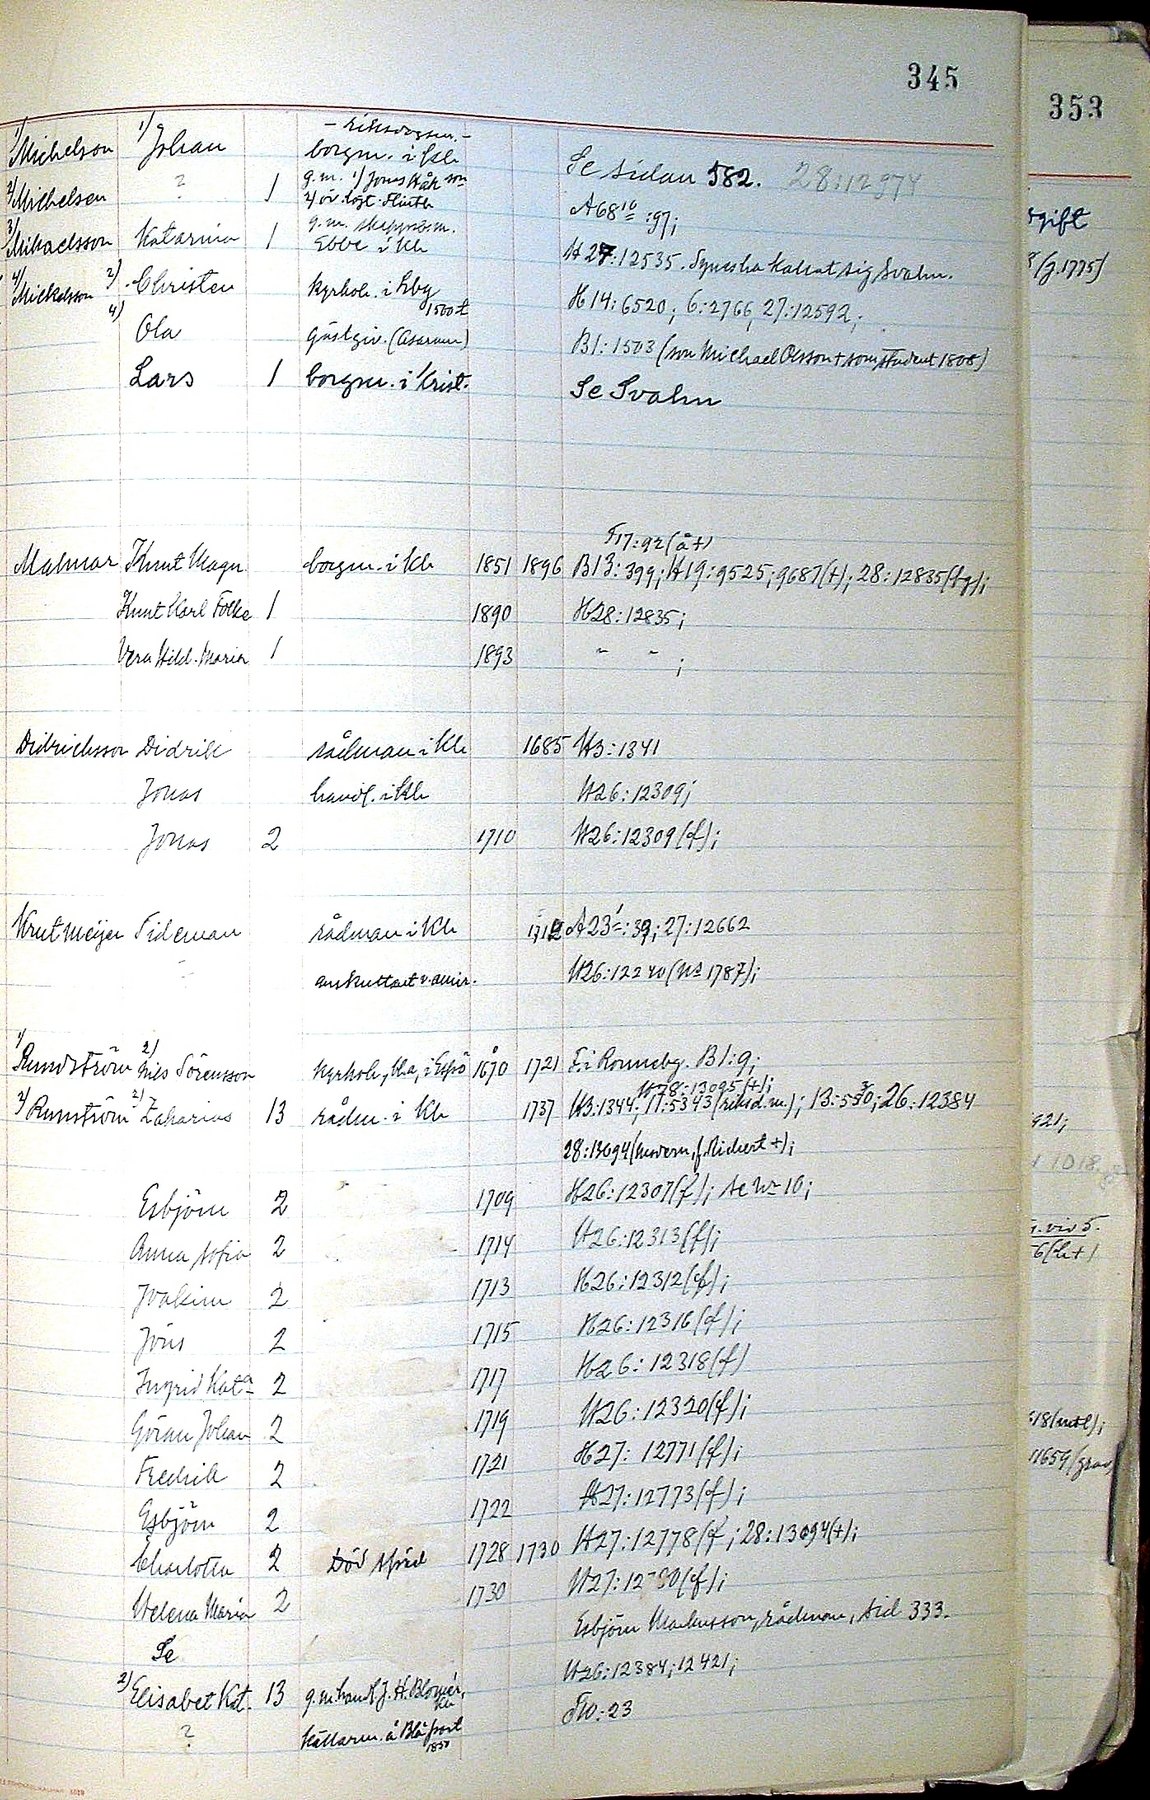 345
353
- riksdagsm. -
1) Michelson 1) Johan borgm. i Kh Se sidan 582. 28:12974
2) Michelsen ? 1 g.m. 1) Jons Kåh son
A68 10 :97;
3) Mikaelsson Katarina 1 g.m. skeppsm.
Ebbe i Kh H27:12535. Synesha kallat sig Svahn.
4) Mickelsson 2) Christen kyrkoh. i Eby H14:6520; 6:2766, 27:12592;
1500 t
4) Ola gästgiv. (Asarum) B1:1503 (son Michael Olsson + som student 1808)
Lars 1 borgm. i Krist. Se Svahn
F17:92 (å+)
Malmar Knut Magn borgm. i Kh 1851 1896 B13:399; H19:9525; 9687(+); 28:12835(fg);
Knut Karl Folke 1 1890 H28:12835;
Vera Hild. Maria 1 1893 " " ;
Didrichsson Didrik rådman i Kh 1685 H3:1341
Jonas handl. i Kh H26:12309;
Jonas 2 1710 H26:12309(f);
Krutmeijer Tideman rådman i Kh 1712 A23 :39; 27:12662
auskultant v. amir. H26:12240 (Nº 1787);
1) Rundström 2) Nils Sörensson kyrkoh, bl.a, i Espö 1670 1721 E i Ronneby. B1:9;
H28:13095(+);
2) Runström 2) Zakarias 13 rådm. i Kh 1737 H3:1344; 17:5343 (riksd.m.); 13:530; 26:12384
28:13094
Esbjörn 2 1709 H26:12307(f); se Nº 10;
Anna Sofia 2 1714 H26:12313(f);
Joakim 2 1713 H26:12312(f);
Jöns 2 1715 H26:12316(f);
Ingrid Kata 2 1717 H26:12318(f)
Göran Johan 2 1719 H26:12320(f);
Fredrik 2 1721 H27:12771(f);
Esbjörn 2 1722 H27:12773(f);
Charlotta 2 Död späd 1728 1730 H27:12778(f; 28:13094(+);
Helena Maria 2 1730 H27:12780(f);
Se Esbjörn Markusson, rådman, sid 333.
2) Elisabet Kat. 13 g.m. handl. J. H. Blomér, Kh H26:12384; 12421;
? källarm. å Blå port F10:23
1830
gift
8 (g. 1775)
921;
1018.
g. viv 5.
6 (h+)
618 (mtl);
1659 (grav